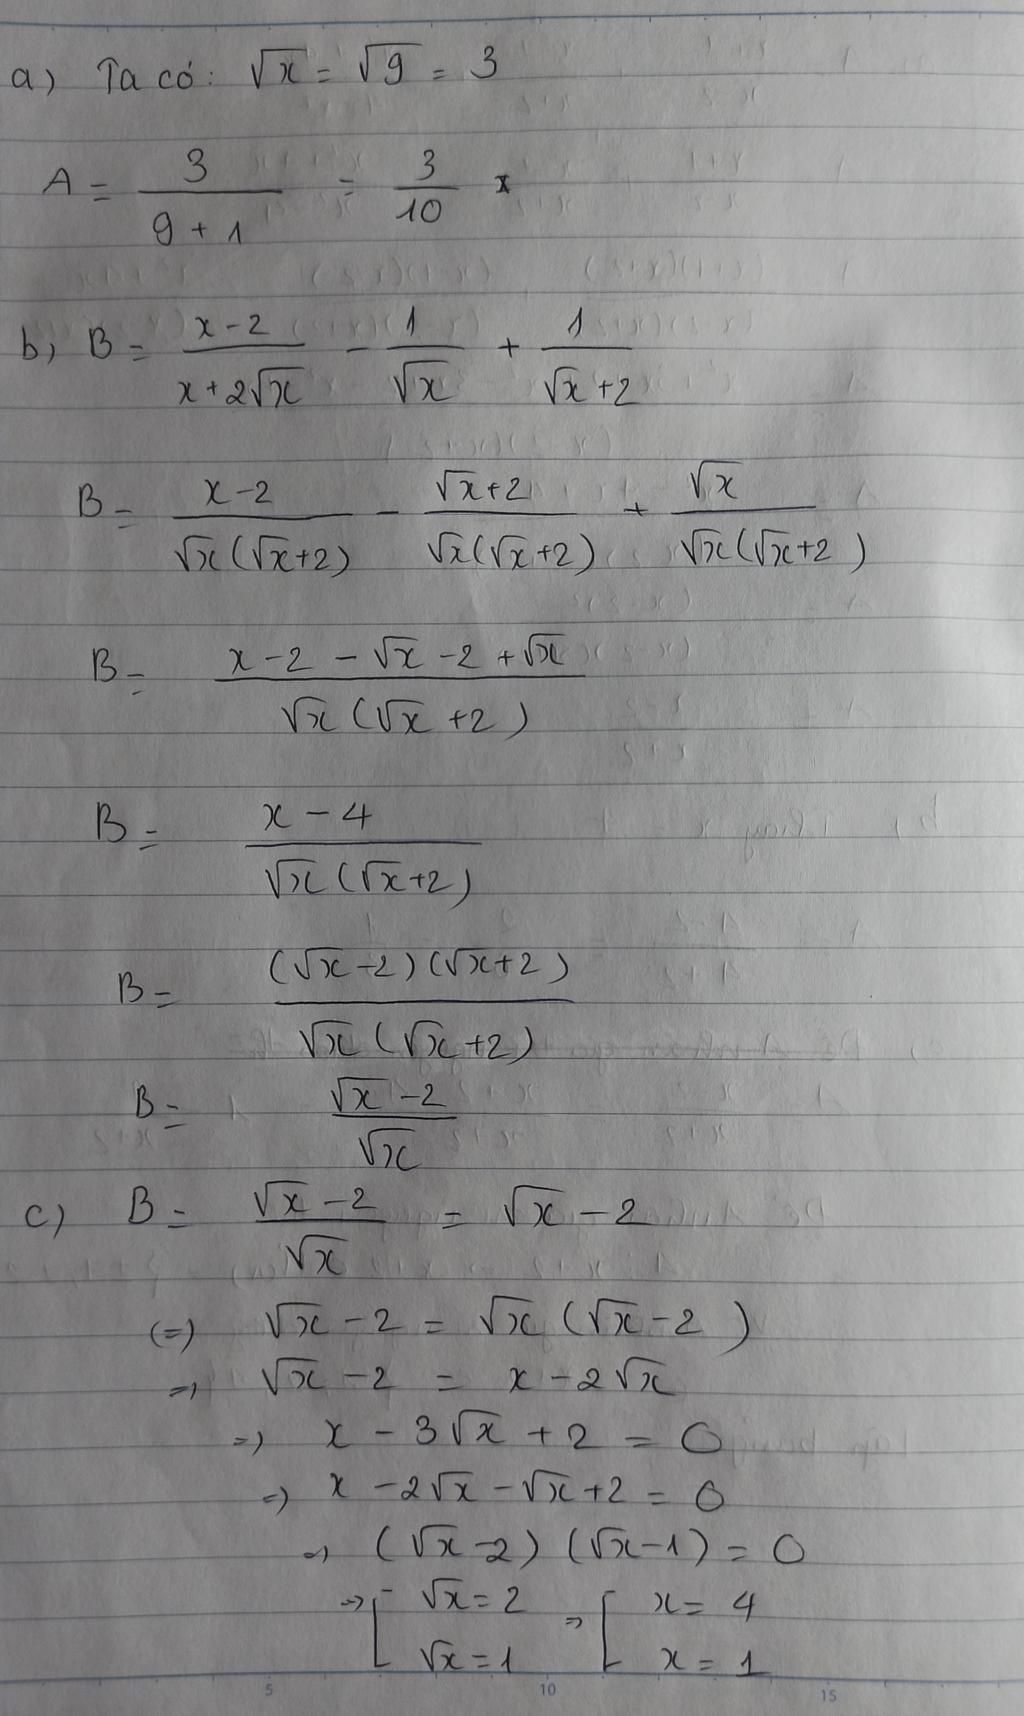 a) Ta có: √x = √9 = 3
A = 3/(9+1) = 3/10 *
b) B = (x-2)/(x+2√x) - 1/√x + 1/(√x+2)
B = (x-2)/(√x(√x+2)) - (√x+2)/(√x(√x+2)) + √x/(√x(√x+2))
B = (x-2-√x-2+√x)/(√x(√x+2))
B = (x-4)/(√x(√x+2))
B = ((√x-2)(√x+2))/(√x(√x+2))
B = (√x-2)/√x
c) B = (√x-2)/√x = √x-2
(=) √x-2 = √x(√x-2)
=) √x-2 = x-2√x
=) x-3√x+2 = 0
=) x-2√x-√x+2 = 0
=) (√x-2)(√x-1) = 0
=) [ √x = 2 => [ x = 4
√x = 1 x = 1
5 10 15